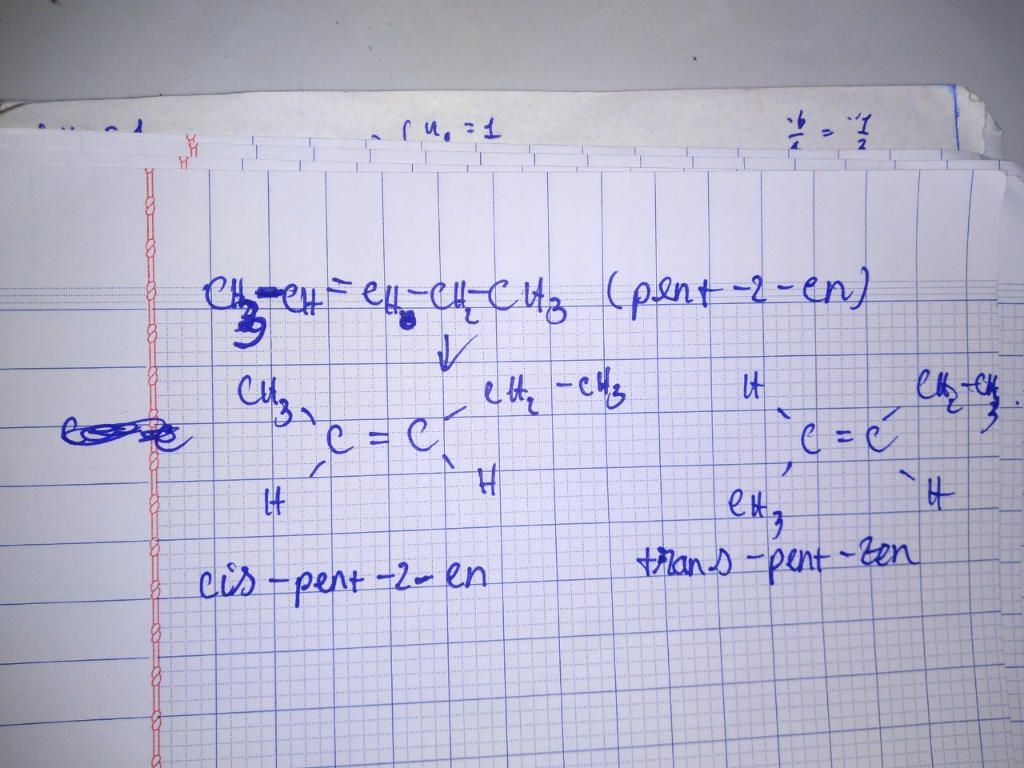 u₀ = 1
CH₃-CH=CH-CH₂-CH₃ (pent-2-en)
CH₃ CH₂-CH₃ H CH₂-CH₃
C=C C=C
H H CH₃ H
cis-pent-2-en trans-pent-2en